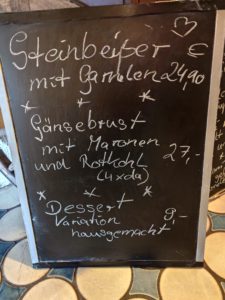 Steinbeißer €
mit Garnelen 24,90
* * *
Gänsebrust
mit Maronen
und Rotkohl 27,-
(4xda)
* * *
Dessert
Variation 9,-
hausgemacht